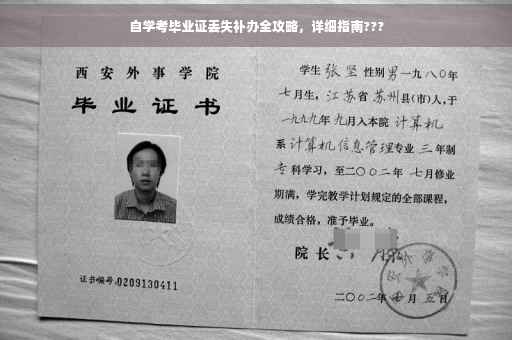 自学考毕业证丢失补办全攻略，详细指南???
西安外事学院
毕业证书
证书编号:0209130411
学生 张坚 性别男一九八〇年
七月生，江苏省苏州县(市)人，于
一九九九年九月入本院 计算机
系计算机信息管理专业 三 年制
专科学习，至二〇〇二年 七月修业
期满，学完教学计划规定的全部课程，
成绩合格，准予毕业。
院长
二〇〇二年 月五日